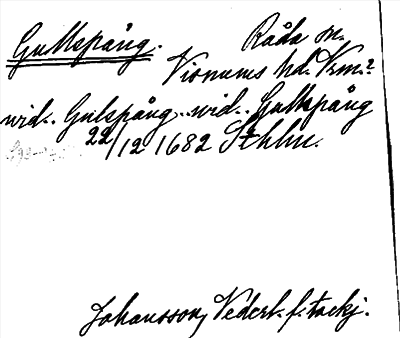 Gullspång. Råda sn.
Visnums hd. Vrm.?
wid.. Gulspång.. wid.. Gullspång
22/12 1682 Sthlm.
Johansson, Vederl. f. tackj.